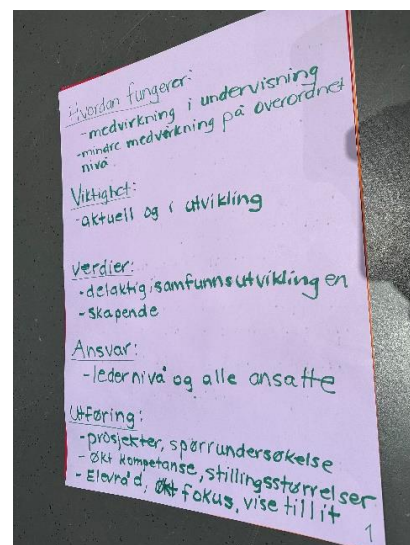 Hvordan fungerer:
-medvirkning i undervisning
-mindre medvirkning på overordnet
nivå
Viktighet:
-aktuell og i utvikling
Verdier:
-delaktig i samfunnsutviklingen
-skapende
Ansvar:
-ledernivå og alle ansatte
Utføring:
-prosjekter, spørrundersøkelse
-økt kompetanse, stillingsstørrelser
-Elevråd, økt fokus, vise tillit
1